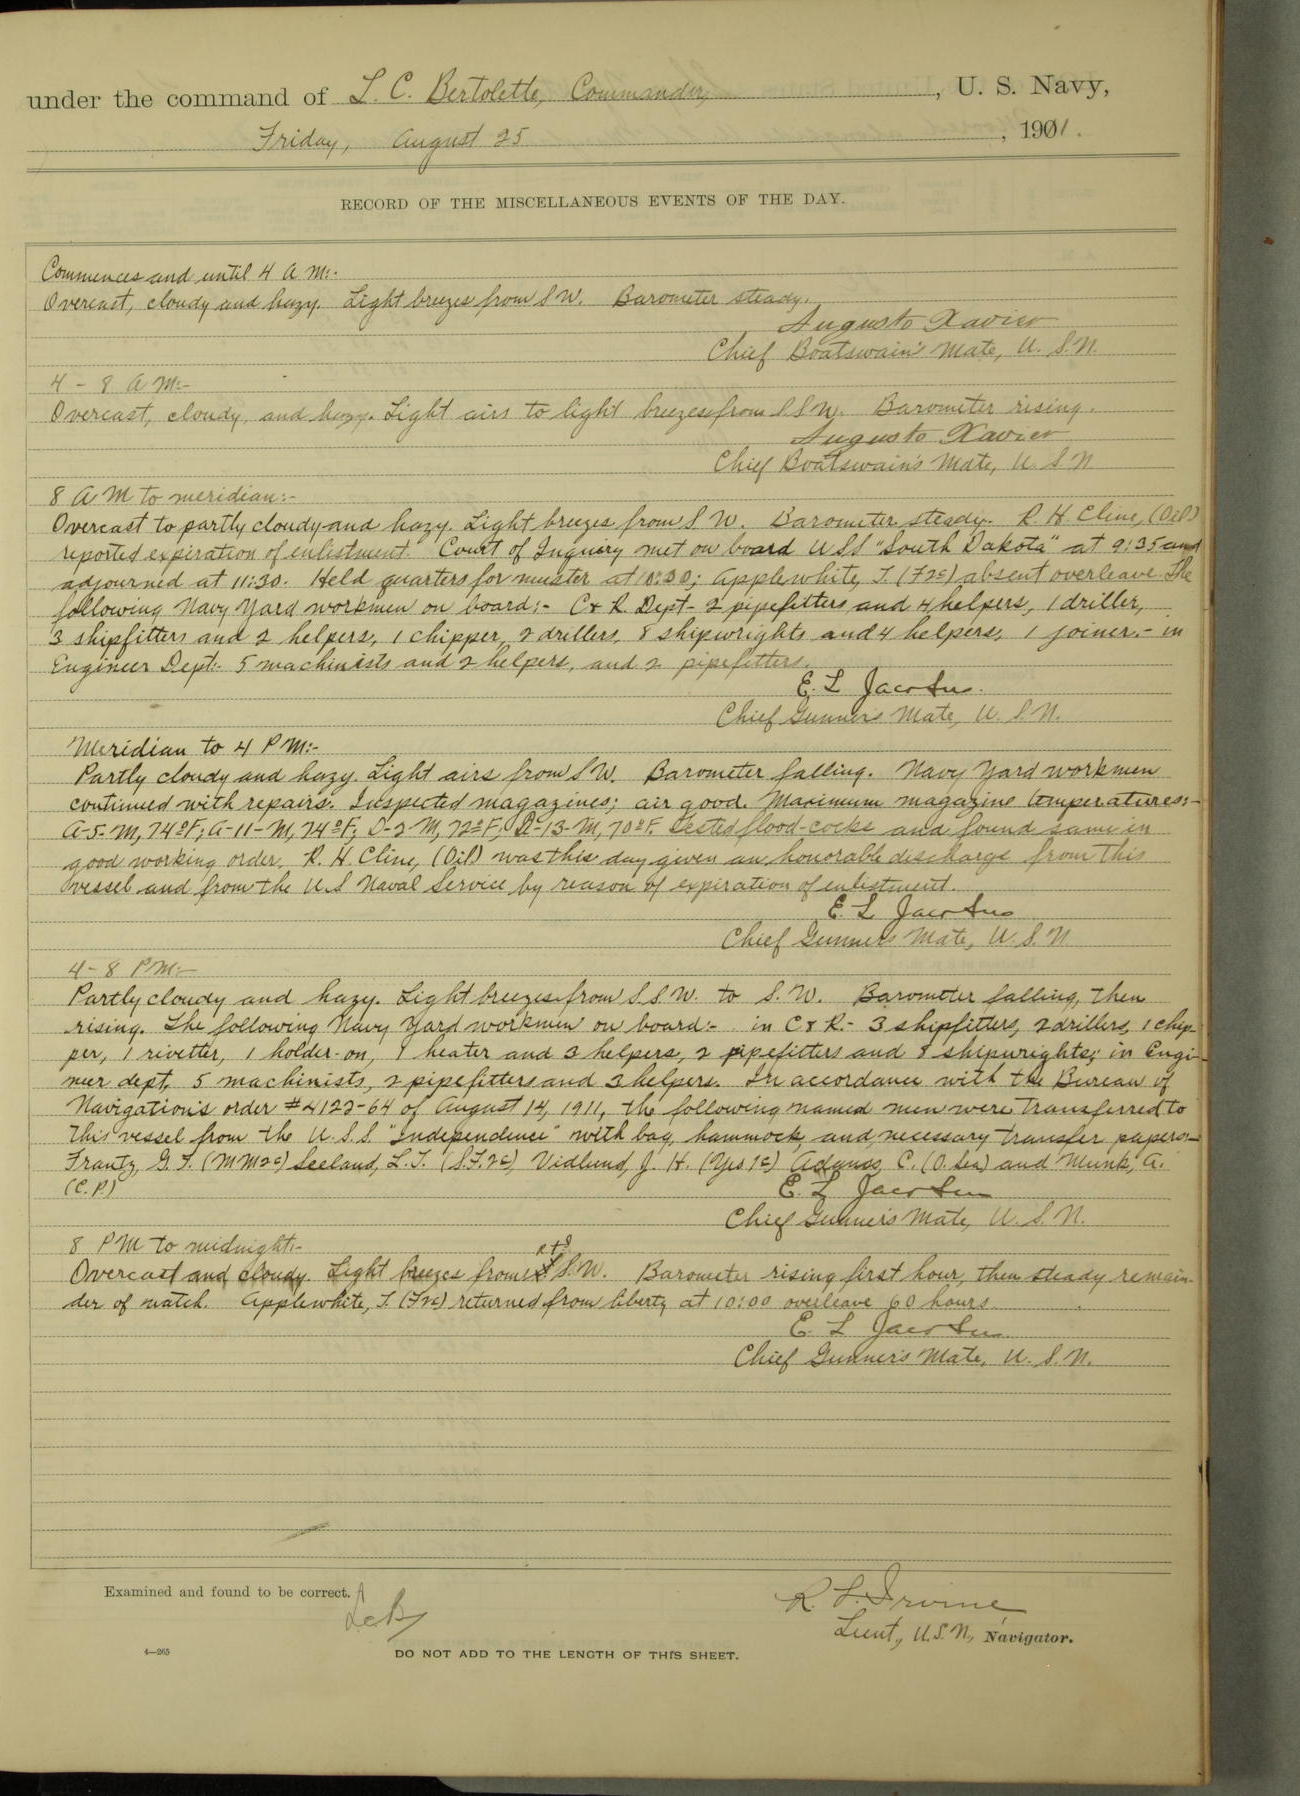 under the command of L. C. Bertolette, Commander, , U. S. Navy,
Friday, August 25 , 1901.
RECORD OF THE MISCELLANEOUS EVENTS OF THE DAY.
Commences and until 4 A M:-
Overcast, cloudy and hazy. Light breezes from S W. Barometer steady.
Augusto Xavier
Chief Boatswain's Mate, U. S. N.
4 - 8 A M:-
Overcast, cloudy, and hazy. Light airs to light breezes from S S W. Barometer rising.
Augusto Xavier
Chief Boatswain's Mate, U. S. N
8 A M to meridian:-
Overcast to partly cloudy and hazy. Light breezes from S W. Barometer steady. R. H. Cline, (Oil)
reported expiration of enlistment. Court of Inquiry met on board U S S "South Dakota" at 9:35 and
adjourned at 11:30. Held quarters for muster at 10:30; Applewhite, T. (F2c) absent overleave. The
following Navy Yard workmen on board:- C & R. Dept- 2 pipefitters and 4 helpers, 1 driller,
3 shipfitters and 2 helpers, 1 chipper, 2 drillers, 8 shipwrights and 4 helpers, 1 joiner.- in
Engineer Dept:- 5 machinists and 2 helpers, and 2 pipefitters.
E. L Jacobus.
Chief Gunner's Mate, U. S. N.
Meridian to 4 P M:-
Partly cloudy and hazy. Light airs from S W. Barometer falling. Navy Yard workmen
continued with repairs. Inspected magazines; air good. Maximum magazine temperatures:-
A-5-M, 74°F; A-11-M, 74°F; D-2-M, 72°F; D-13-M, 70°F. Tested flood-cocks and found same in
good working order. R. H. Cline, (Oil) was this day given an honorable discharge from this
vessel and from the U.S Naval Service by reason of expiration of enlistment.
E. L Jacobus
Chief Gunner's Mate, U. S. N
4 - 8 P M:-
Partly cloudy and hazy. Light breezes from S S W. to S. W. Barometer falling, then
rising. The following Navy Yard workmen on board:- in C & R.- 3 shipfitters, 2 drillers, 1 chip-
per, 1 rivetter, 1 holder-on, 1 heater and 3 helpers, 2 pipefitters and 8 shipwrights; in Engi-
neer dept, 5 machinists, 2 pipefitters and 3 helpers. In accordance with the Bureau of
Navigation's order #4122-64 of August 14, 1911, the following named men were transferred to
this vessel from the U.S.S. "Independence" with bag, hammock, and necessary transfer papers:-
Frantz, G. F. (M M 2c) Seeland, L. T. (S.F. 2c) Vidlund, J. H. (Yeo 1c) Adams, C. (O. Sea) and Munk, A.
(C. P.)
E. L Jacobus
Chief Gunner's Mate, U. S. N.
8 P M to midnight:-
Overcast and cloudy. Light breezes from S.W. Barometer rising first hour, then steady remain-
der of watch. Applewhite, T. (F2c) returned from liberty at 10:00 overleave 60 hours.
E. L Jacobus
Chief Gunner's Mate, U. S. N.
Examined and found to be correct.
LCB
R. F. Irvine
Lieut., U.S.N., Navigator.
4—265
DO NOT ADD TO THE LENGTH OF THIS SHEET.